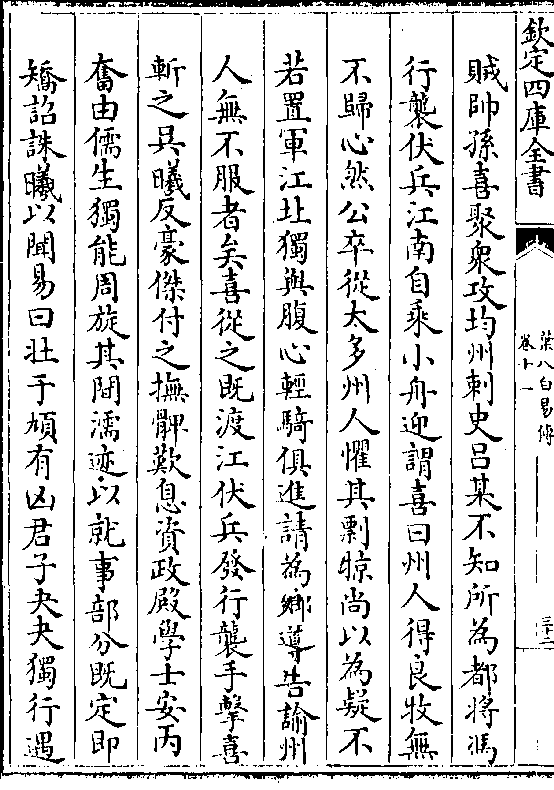 欽定四庫全書
葉八白易傳
卷十一
三十二
賊帥孫喜聚衆攻均州刺史吕某不知所為都將馮
行襲伏兵江南自乘小舟迎謂喜曰州人得良牧無
不歸心然公卒從太多州人懼其剽掠尚以為疑不
若置軍江北獨與腹心輕騎俱進請為鄉導告諭州
人無不服者矣喜從之既渡江伏兵發行襲手擊喜
斬之吳曦反豪傑付之撫髀歎息資政殿學士安丙
奮由儒生獨能周旋其間濡迹以就事部分既定即
矯詔誅曦以聞易曰壮于頄有凶君子夬夬獨行遇